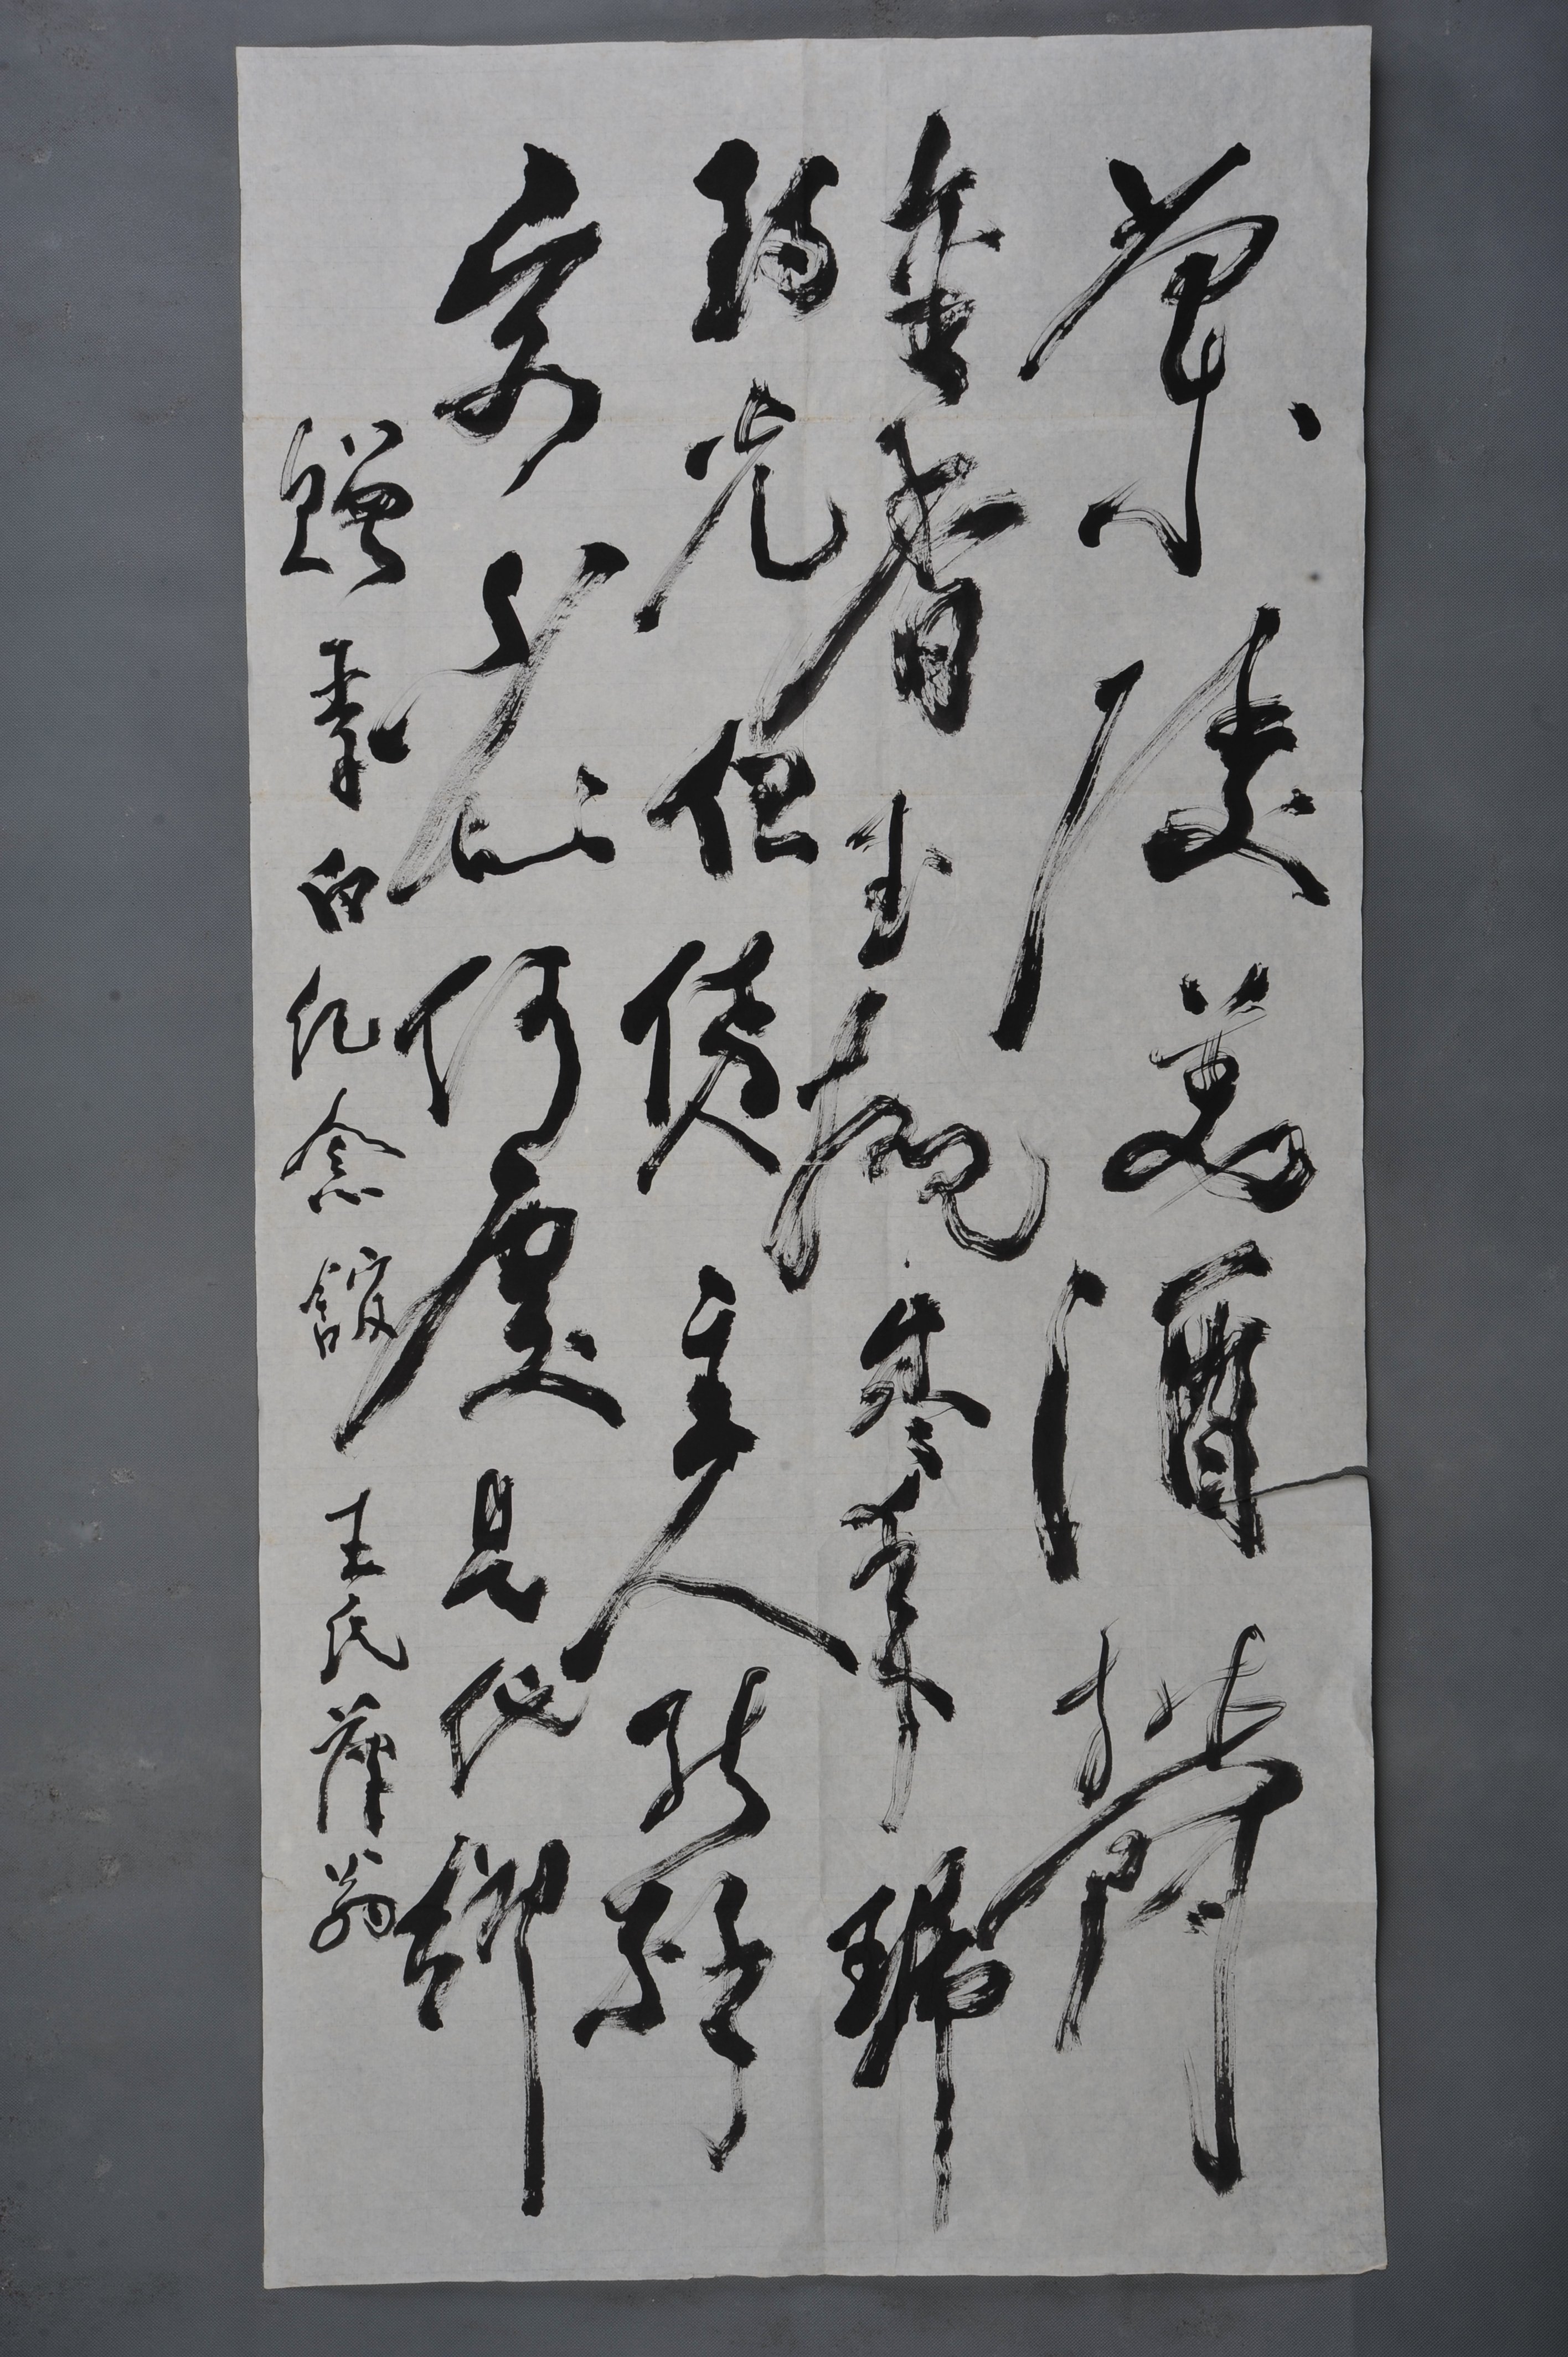 蘭陵美酒鬱
金香玉椀盛來琥
珀光但使主人能醉
客不知何處是他鄉
贈李白纪念館 王氏翁